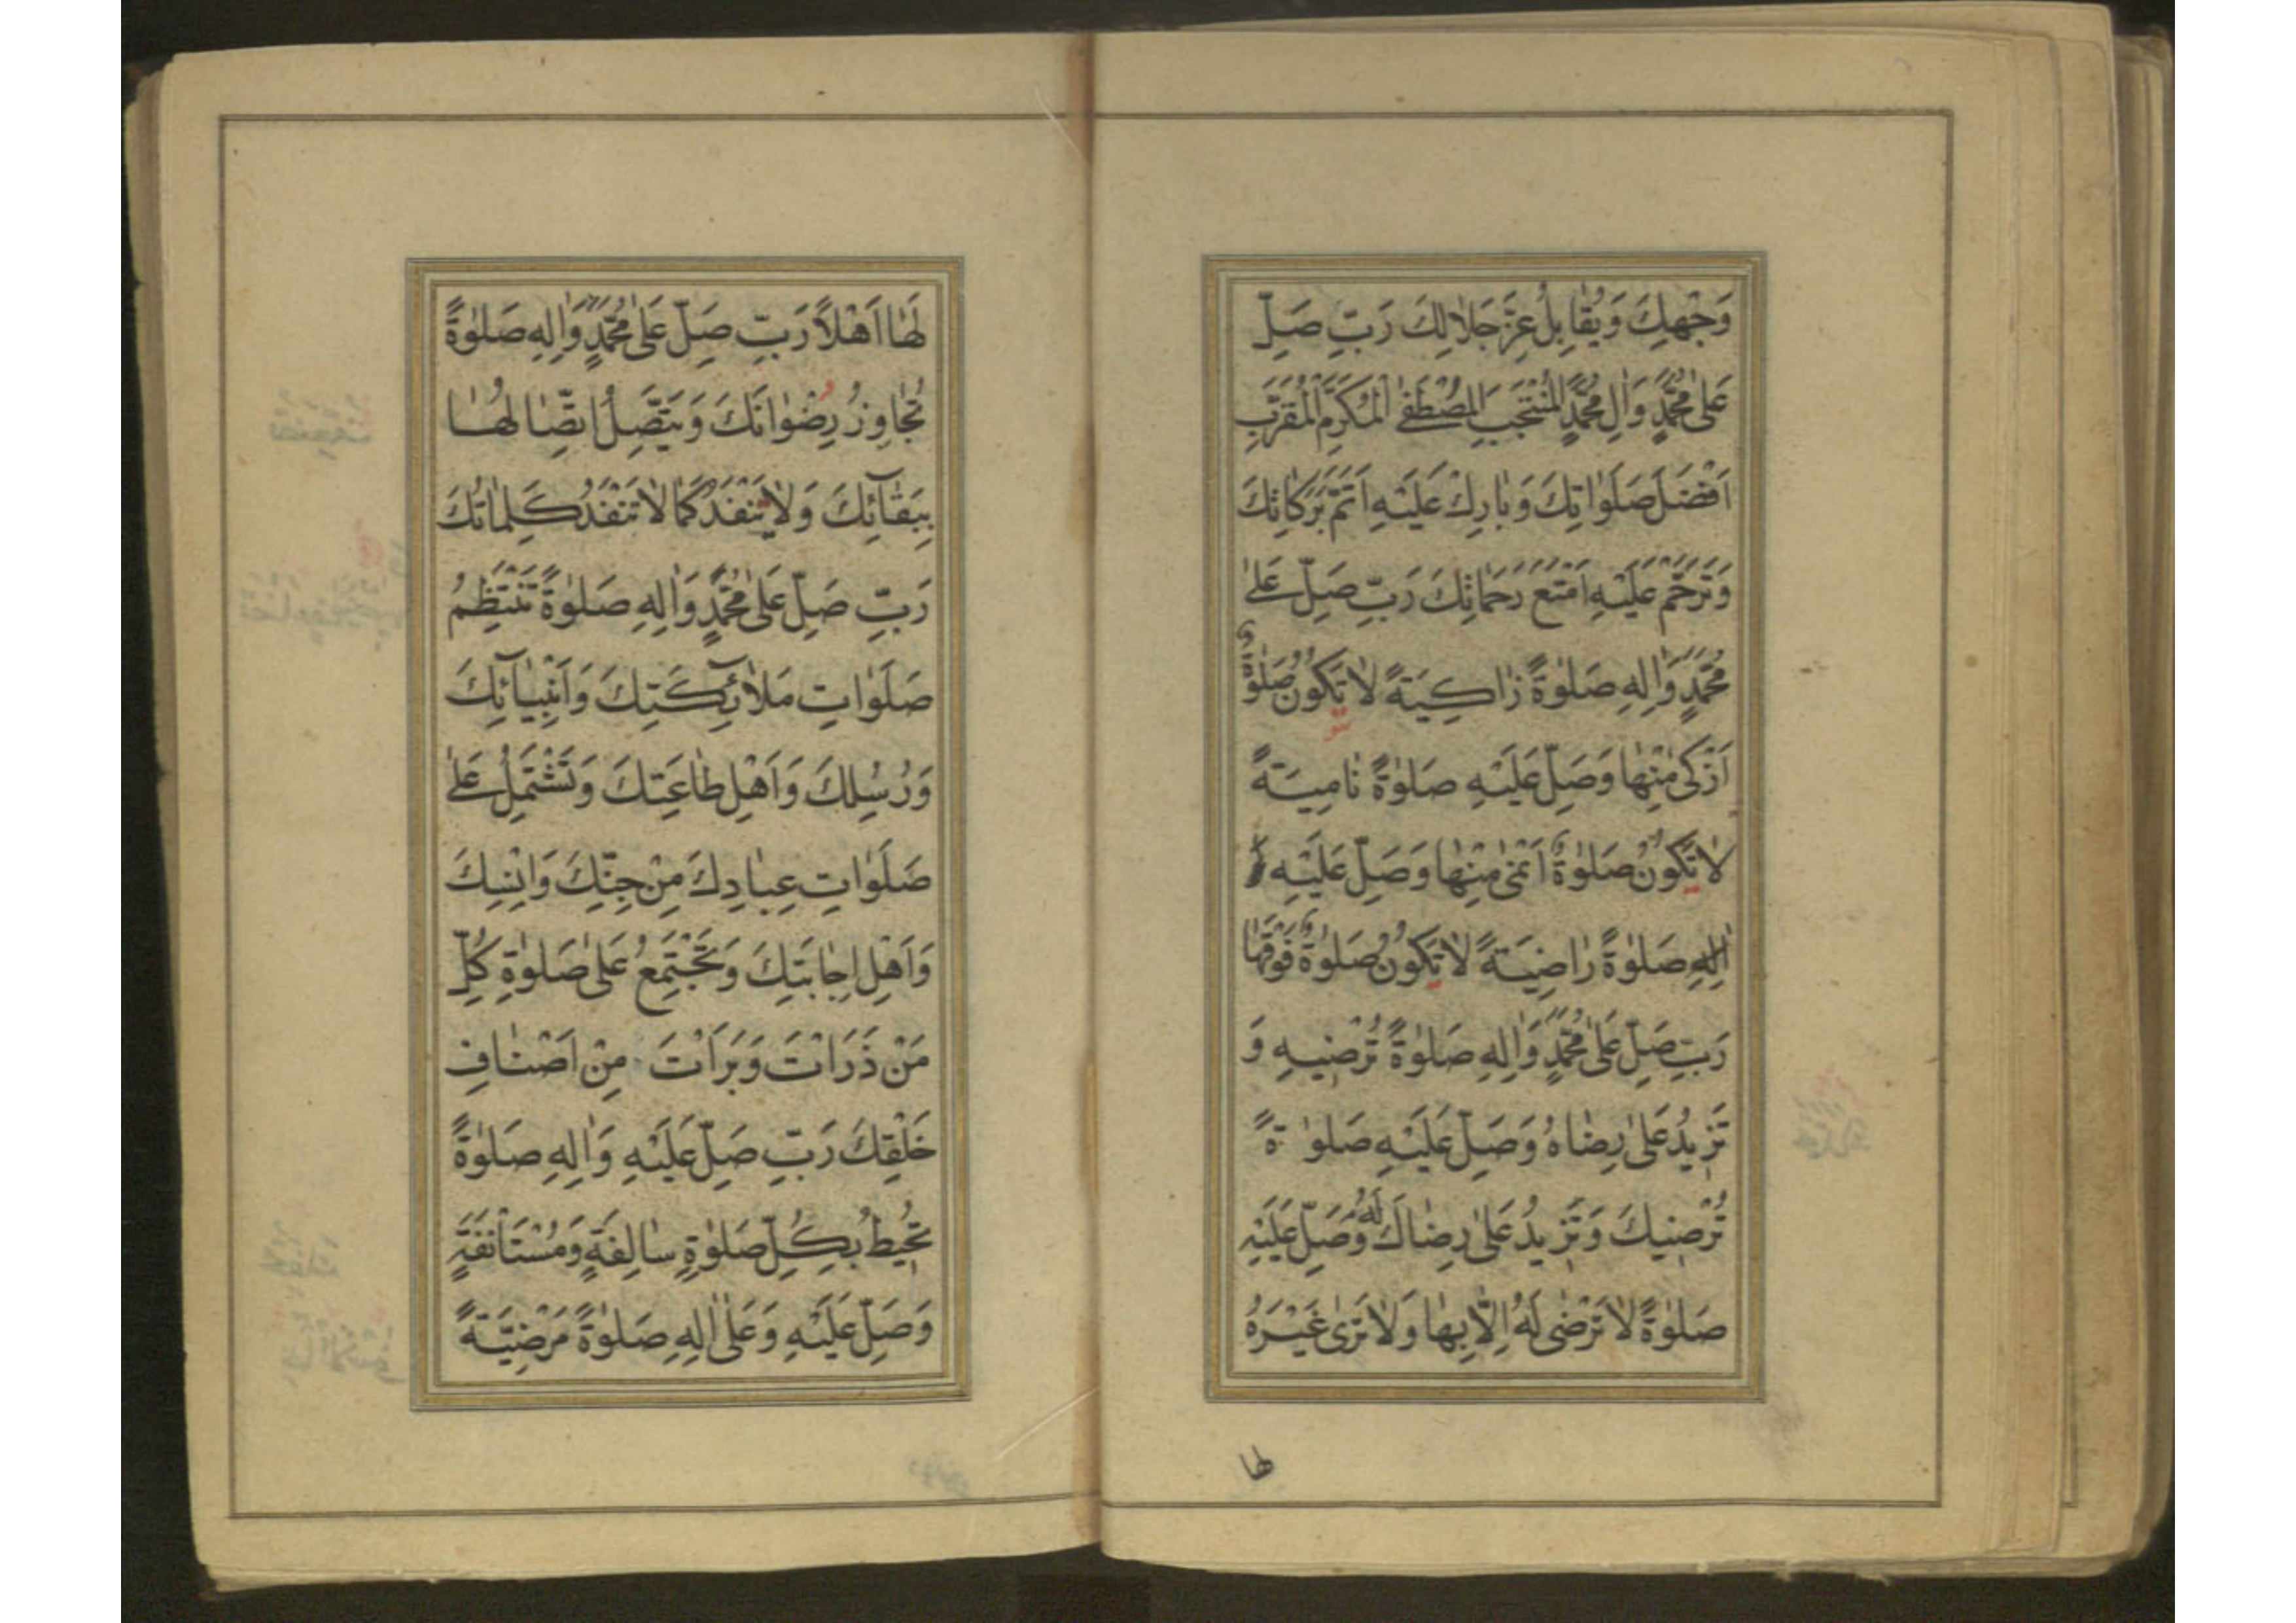 وَجْهِكَ وَيُقٰابِلُ عِزَّ جَلٰالِكَ رَبِّ صَلِّ
عَلىٰ مُحَمَّدٍ وَاٰلِ مُحَمَّدٍ الْمُنْتَجَبِ الْمُصْطَفىٰ الْمُكَرَّمِ الْمُقَرَّبِ
اَفْضَلَ صَلَوٰاتِكَ وَبٰارِكْ عَلَيْهِ اَتَمَّ بَرَكٰاتِكَ
وَتَرَحَّمْ عَلَيْهِ اَمْتَعَ رَحَمٰاتِكَ رَبِّ صَلِّ عَلىٰ
مُحَمَّدٍ وَاٰلِهِ صَلوٰةً زٰاكِيَةً لٰا تَكُونُ صَلوٰةٌ
اَزْكىٰ مِنْهٰا وَصَلِّ عَلَيْهِ صَلوٰةً نٰامِيَةً
لٰا تَكُونُ صَلوٰةٌ اَنْمىٰ مِنْهٰا وَصَلِّ عَلَيْهِ
اٰلِهِ صَلوٰةً رٰاضِيَةً لٰا تَكُونُ صَلوٰةٌ فَوْقَهٰا
رَبِّ صَلِّ عَلىٰ مُحَمَّدٍ وَاٰلِهِ صَلوٰةً تُرْضِيهِ وَ
تَزِيدُ عَلىٰ رِضٰاهُ وَصَلِّ عَلَيْهِ صَلوٰةً
تُرْضِيكَ وَتَزِيدُ عَلىٰ رِضٰاكَ لَهُ وَصَلِّ عَلَيْهِ
صَلوٰةً لٰا تَرْضىٰ لَهُ اِلّٰا بِهٰا وَلٰا تَرىٰ غَيْرَهُ
لها
لَهٰا اَهْلاً رَبِّ صَلِّ عَلىٰ مُحَمَّدٍ وَاٰلِهِ صَلوٰةً
تُجٰاوِزُ رِضْوٰانَكَ وَيَتَّصِلُ اتِّصٰالُهٰا
بِبَقٰآئِكَ وَلٰا يَنْفَدُ كَمٰا لٰا تَنْفَدُ كَلِمٰاتُكَ
رَبِّ صَلِّ عَلىٰ مُحَمَّدٍ وَاٰلِهِ صَلوٰةً تَنْتَظِمُ
صَلَوٰاتِ مَلٰآئِكَتِكَ وَاَنْبِيٰآئِكَ
وَرُسُلِكَ وَاَهْلِ طٰاعَتِكَ وَتَشْتَمِلُ عَلىٰ
صَلَوٰاتِ عِبٰادِكَ مِنْ جِنِّكَ وَاِنْسِكَ
وَاَهْلِ اِجٰابَتِكَ وَتَجْتَمِعُ عَلىٰ صَلوٰةِ كُلِّ
مَنْ ذَرَاْتَ وَبَرَاْتَ مِنْ اَصْنٰافِ
خَلْقِكَ رَبِّ صَلِّ عَلَيْهِ وَاٰلِهِ صَلوٰةً
تُحِيطُ بِكُلِّ صَلوٰةٍ سٰالِفَةٍ وَمُسْتَاْنَفَةٍ
وَصَلِّ عَلَيْهِ وَعَلىٰ اٰلِهِ صَلوٰةً مَرْضِيَّةً